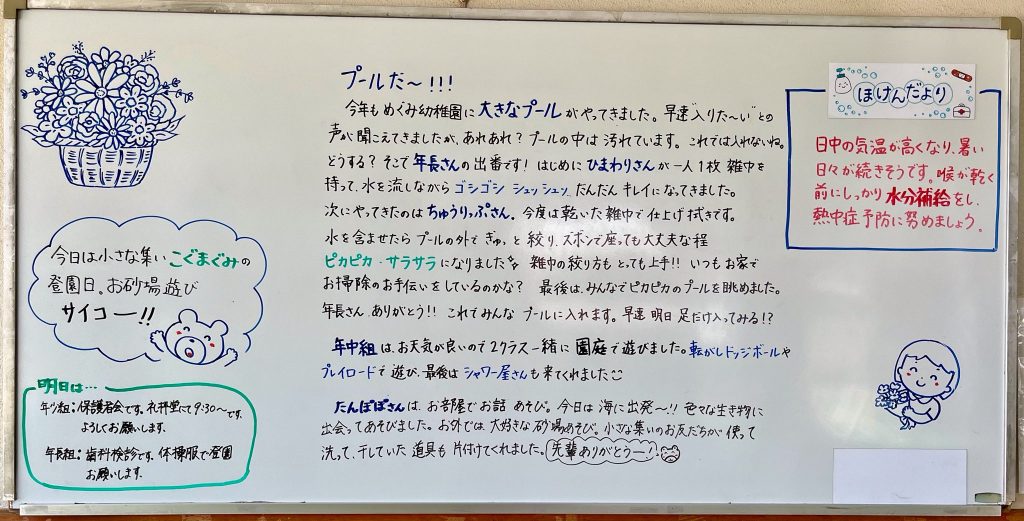 プールだ〜!!!
今年も めぐみ幼稚園に 大きなプール がやってきました。早速“入りた〜い”との
声が聞こえてきましたが、あれあれ？プールの中は 汚れています。これでは入れないね。
どうする？そこで 年長さんの出番です！はじめに ひまわりさんが 一人1枚 雑巾を
持って、水を流しながら ゴシゴシ シュッシュッ だんだん キレイになってきました。
次にやってきたのは ちゅうりっぷさん。今度は乾いた雑巾で仕上げ拭きです。
水を含ませたら プールの外で ぎゅっと 絞り、ズボンで座っても大丈夫な程
ピカピカ・サラサラになりました 雑巾の絞り方も とっても上手!! いつもお家で
お掃除のお手伝いをしているのかな？ 最後は、みんなでピカピカのプールを眺めました。
年長さん ありがとう!! これでみんな プールに入れます。早速 明日 足だけ入ってみる!?
年中組は、お天気が良いので2クラス一緒に 園庭で遊びました。転がしドッジボールや
プレイロードで 遊び、最後は シャワー屋さんも来てくれました
たんぽぽさんは、お部屋でお話 あそび。今日は 海に出発〜!! 色々な生き物に
出会ってあそびました。お外では、大好きな 砂場あそび。小さな集いのお友だちが 使って
洗って、干していた 道具も 片付けてくれました。先輩ありがとうー!
今日は小さな集い こぐまぐみの
登園日。お砂場遊び
サイコー!!
明日は…
年少組：保護者会です。礼拝堂にて9:30〜です。
よろしくお願いします。
年長組：歯科検診です。体操服で登園
お願いします。
ほけんだより
日中の気温が高くなり、暑い
日々が続きそうです。喉が乾く
前にしっかり 水分補給をし、
熱中症予防に努めましょう。